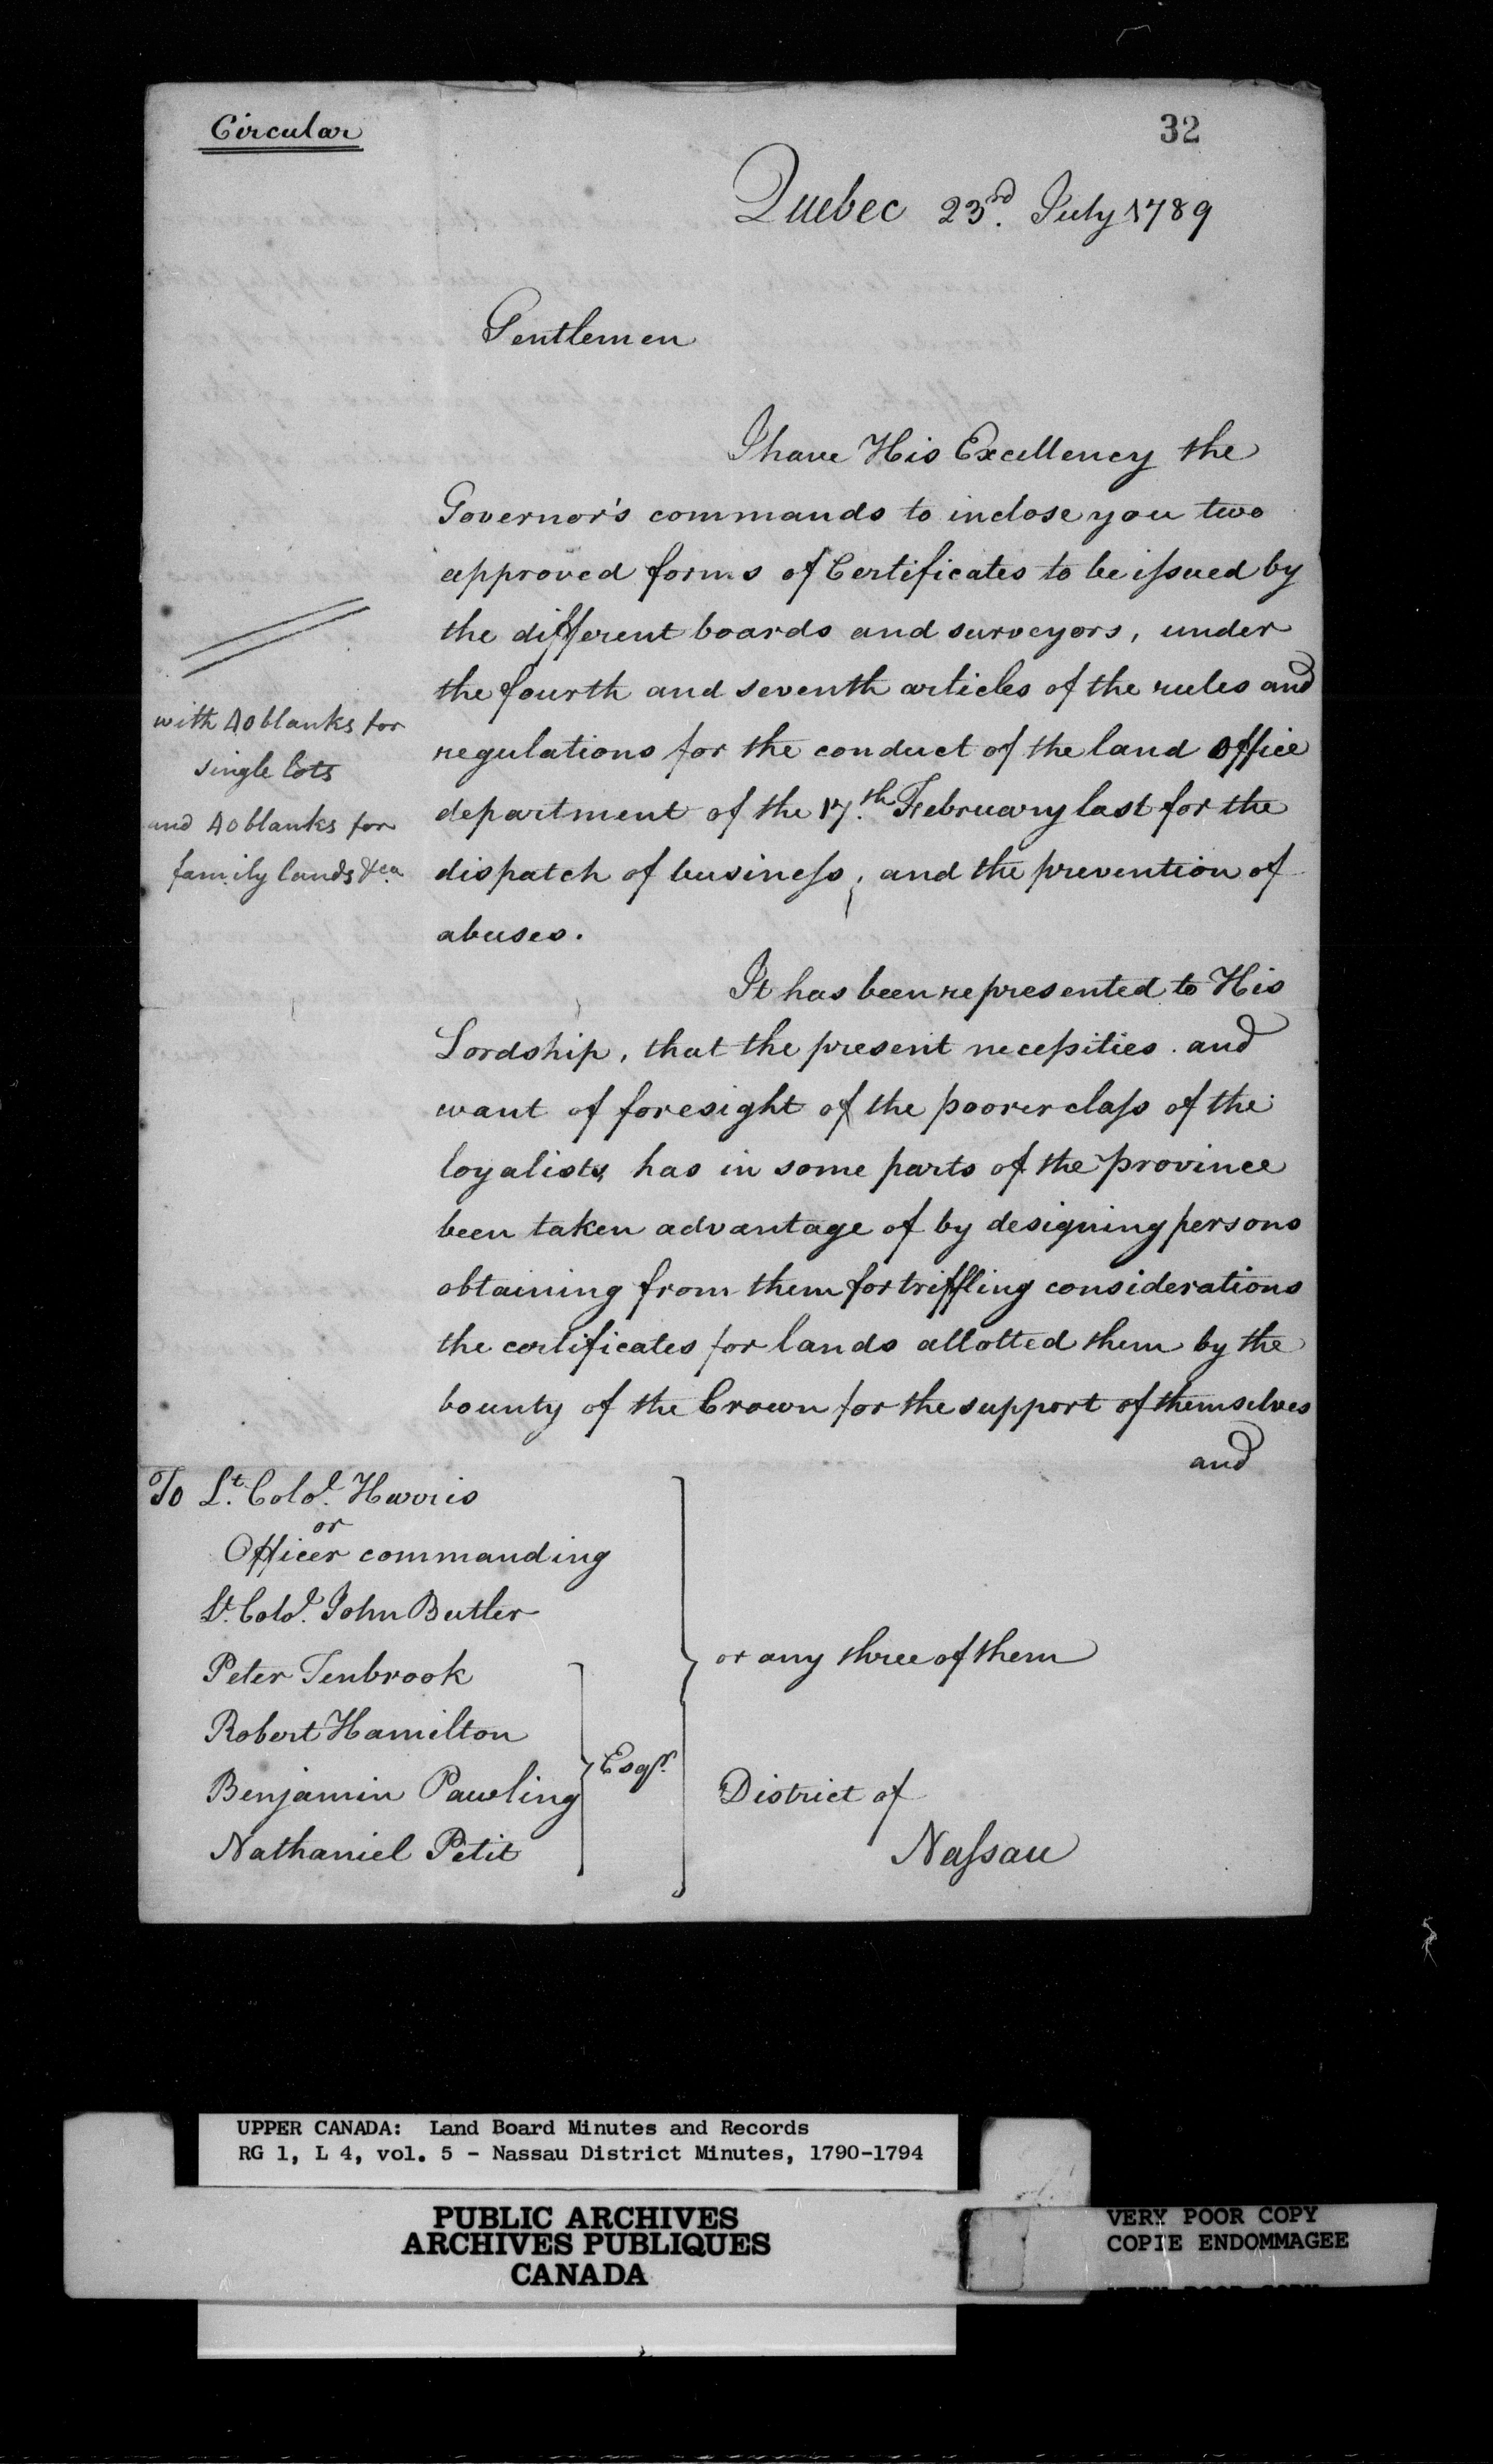 Circular
32
Quebec 23rd. July 1789
Gentlemen
I have His Excellency the
Governor's commands to inclose you two
approved forms of Certificates to be issued by
the different boards and surveyors, under
the fourth and seventh articles of the rules and
regulations for the conduct of the land office
department of the 17.th February last for the
dispatch of business; and the prevention of
abuses.
with 40 blanks for
single lots
and 40 blanks for
family lands &ca
It has been represented to His
Lordship, that the present necessities and
want of foresight of the poorer class of the
loyalists, has in some parts of the province
been taken advantage of by designing persons
obtaining from them for triffling considerations
the certificates for lands allotted them by the
bounty of the Crown for the support of themselves
and
To Lt. Colol. Harris
or
Officer commanding
Lt. Colol. John Butler
Peter Tenbrook
Robert Hamilton
Benjamin Pawling
Nathaniel Petit
Esqrs.
or any three of them
District of
Nassau
UPPER CANADA: Land Board Minutes and Records
RG 1, L 4, vol. 5 - Nassau District Minutes, 1790-1794
PUBLIC ARCHIVES
ARCHIVES PUBLIQUES
CANADA
VERY POOR COPY
COPIE ENDOMMAGEE